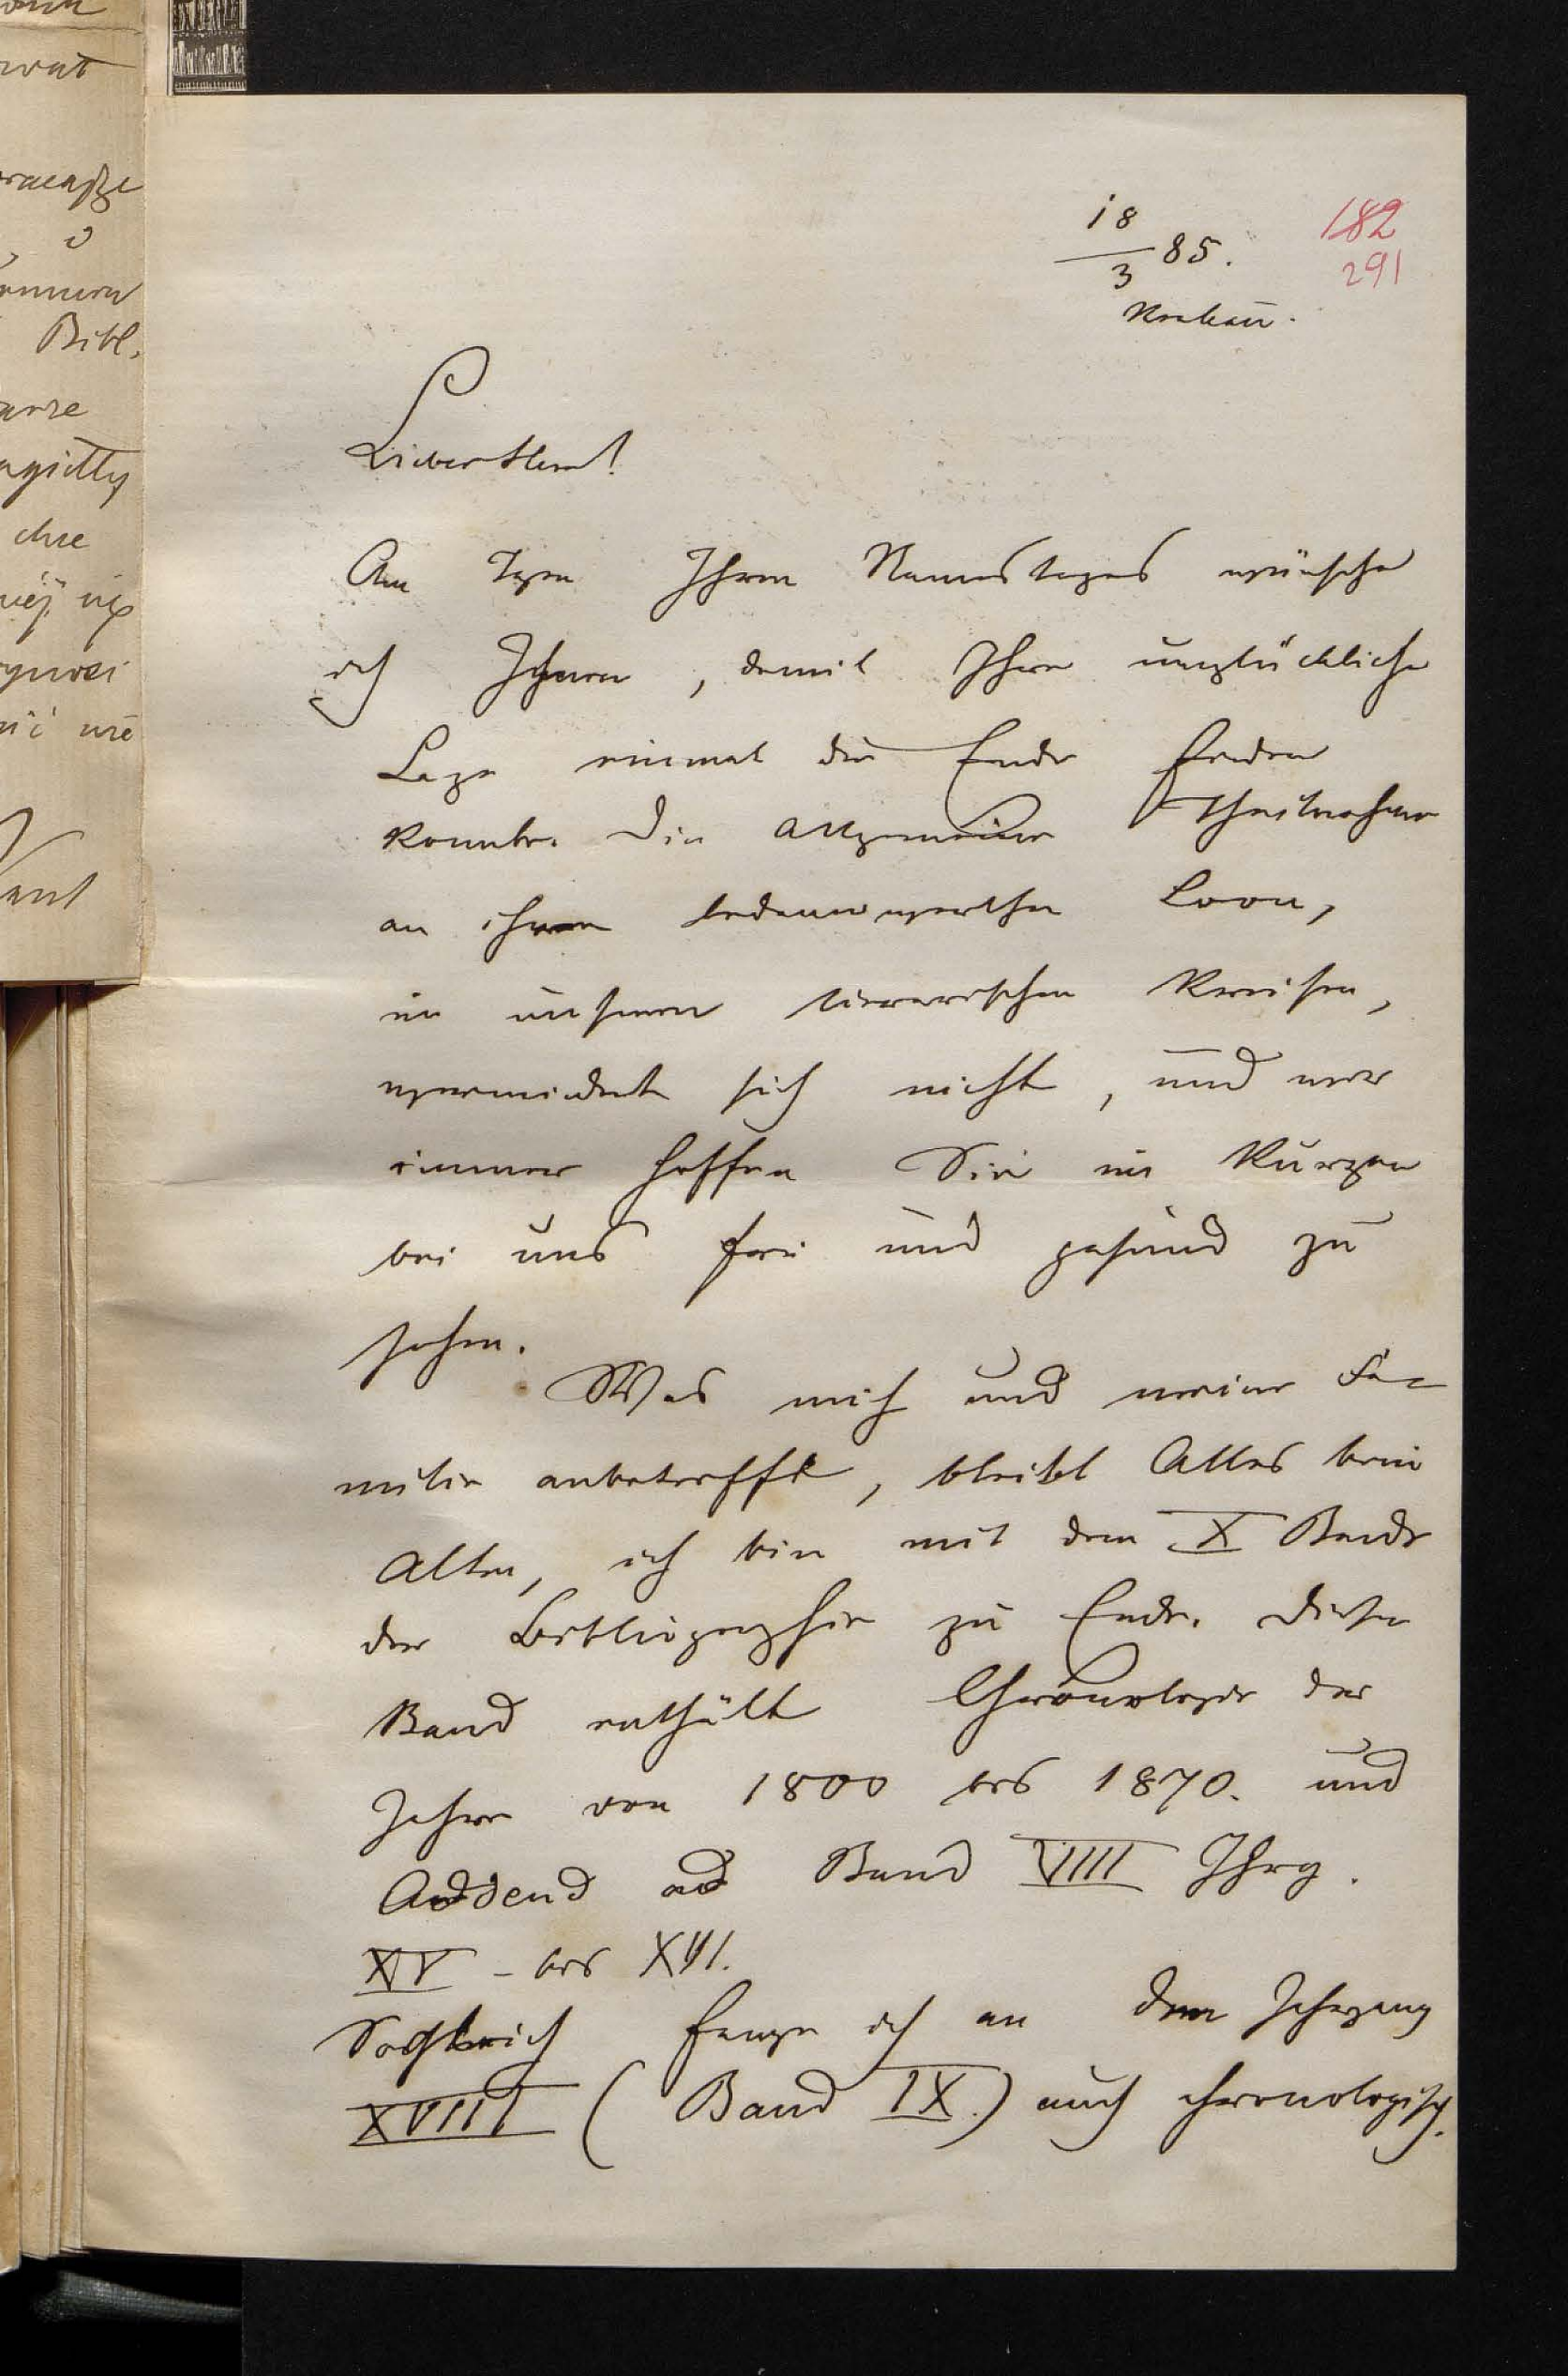 18/3 85.
182
291
Krakau.
Lieber Herr!
Am Tage Ihren Namenstages wünsche
ich Ihnen, damit Ihre unglückliche
Lage einmal die Ende finden
konnte. Die allgemeine Theilnahme
an ihrem bedauerwerthen Loose,
in unseren literarischen Kreisen,
vermindert sich nicht, und wir
immer hoffen Sie in Kurzen
bei uns frei und gesund zu
sehen.
Was mich und meine Fa-
milie anbetrifft, bleibt Alles beim
Alten, ich bin mit dem X Bande
der Bibliographie zu Ende. Dieser
Band enthält Chronologie der
Jahre von 1800 bis 1870. und
Addend ad Band VIII Jhrg.
XV – bis XVI.
Sogleich fange ich an dem Jahrgang
XVIII (Band IX.) auch chronologisch.
wat
o
Bibl.